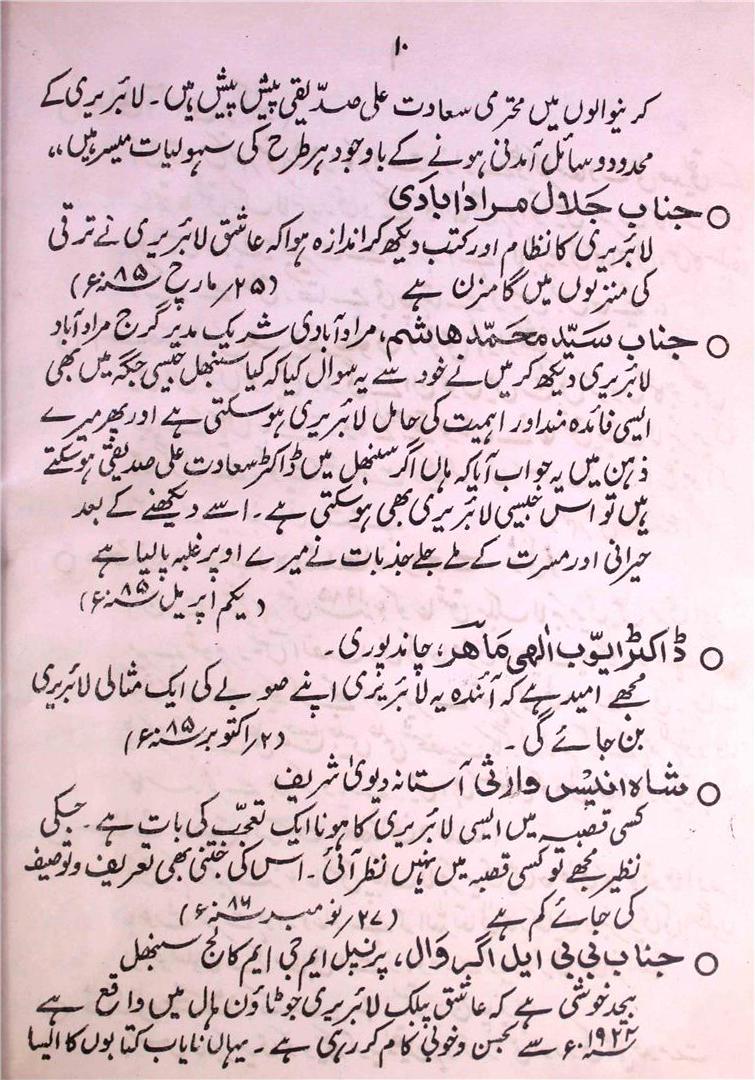 ۱۰
کرنیوالوں میں محترمی سعادت علی صدّیقی پیش پیش ہیں۔ لائبریری کے
محدود وسائل آمدنی ہونے کے باوجود ہر طرح کی سہولیات میسر ہیں،،
○ جناب جلال مرادآبادی
لائبریری کا نظام اور کتب دیکھ کر اندازہ ہوا کہ عاشق لائبریری نے ترقی
کی منزلوں میں گامزن ہے (۲۵؍مارچ ۸۵ء)
○ جناب سیّد محمّد ھاشم، مرادآبادی شریک مدیر گرج مرادآباد
لائبریری دیکھ کر میں نے خود سے یہ سوال کیا کہ کیا سنبھل جیسی جگہ میں بھی
ایسی فائدہ مند اور اہمیت کی حامل لائبریری ہو سکتی ہے اور پھر میرے
ذہن میں یہ جواب آیا کہ ہاں اگر سنبھل میں ڈاکٹر سعادت علی صدیقی ہو سکتے
ہیں تو اس جیسی لائبریری بھی ہو سکتی ہے۔ اسے دیکھنے کے بعد
حیرانی اور مسرت کے ملے جلے جذبات نے میرے اوپر غلبہ پالیا ہے
(یکم اپریل ۸۵ء)
○ ڈاکٹر ایوّب الٰھی ماھر، چاندپوری۔
مجھے امید ہے کہ آئندہ یہ لائبریری اپنے صوبے کی ایک مثالی لائبریری
بن جائے گی۔ (۲؍اکتوبر ۸۵ء)
○ شاہ انیس وارثی آستانہ دیویٰ شریف
کسی قصبہ میں ایسی لائبریری کا ہونا ایک تعجّب کی بات ہے۔ جسکی
نظیر مجھے تو کسی قصبہ میں نہیں نظر آئی۔ اس کی جتنی بھی تعریف و توصیف
کی جائے کم ہے (۲۷؍نومبر ۸۶ء)
○ جناب بی بی ایل اگروال، پرنسپل ایم جی ایم کالج سنبھل
بیحد خوشی ہے کہ عاشق پبلک لائبریری جو ٹاؤن ہال میں واقع ہے
۱۹۲۲ء سے بحسن و خوبی کام کر رہی ہے۔ یہاں نایاب کتابوں کا ایسا